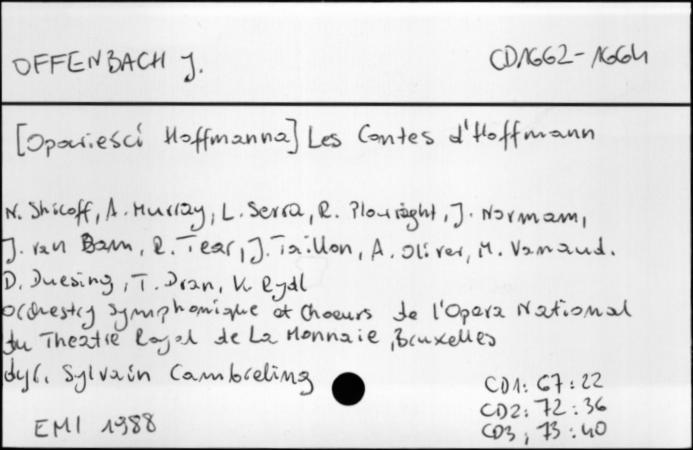 OFFENBACH J.
CD1662-1664
[Opowieści Hoffmanna] Les Contes d'Hoffmann
N. Shicoff, A. Murray, L. Serra, R. Plowright, J. Normam,
J. van Dam, R. Tear, J. Taillon, A. Oliver, M. Vanaud.
D. Duesing, T. Dran, K. Rydl
Orchestry Symphonique et Choeurs de l'Opera National
du Theatre Royal de La Monnaie, Bruxelles
dyr. Sylvain Cambreling
EMI 1988
CD1: 67:22
CD2: 72:36
CD3: 73:40